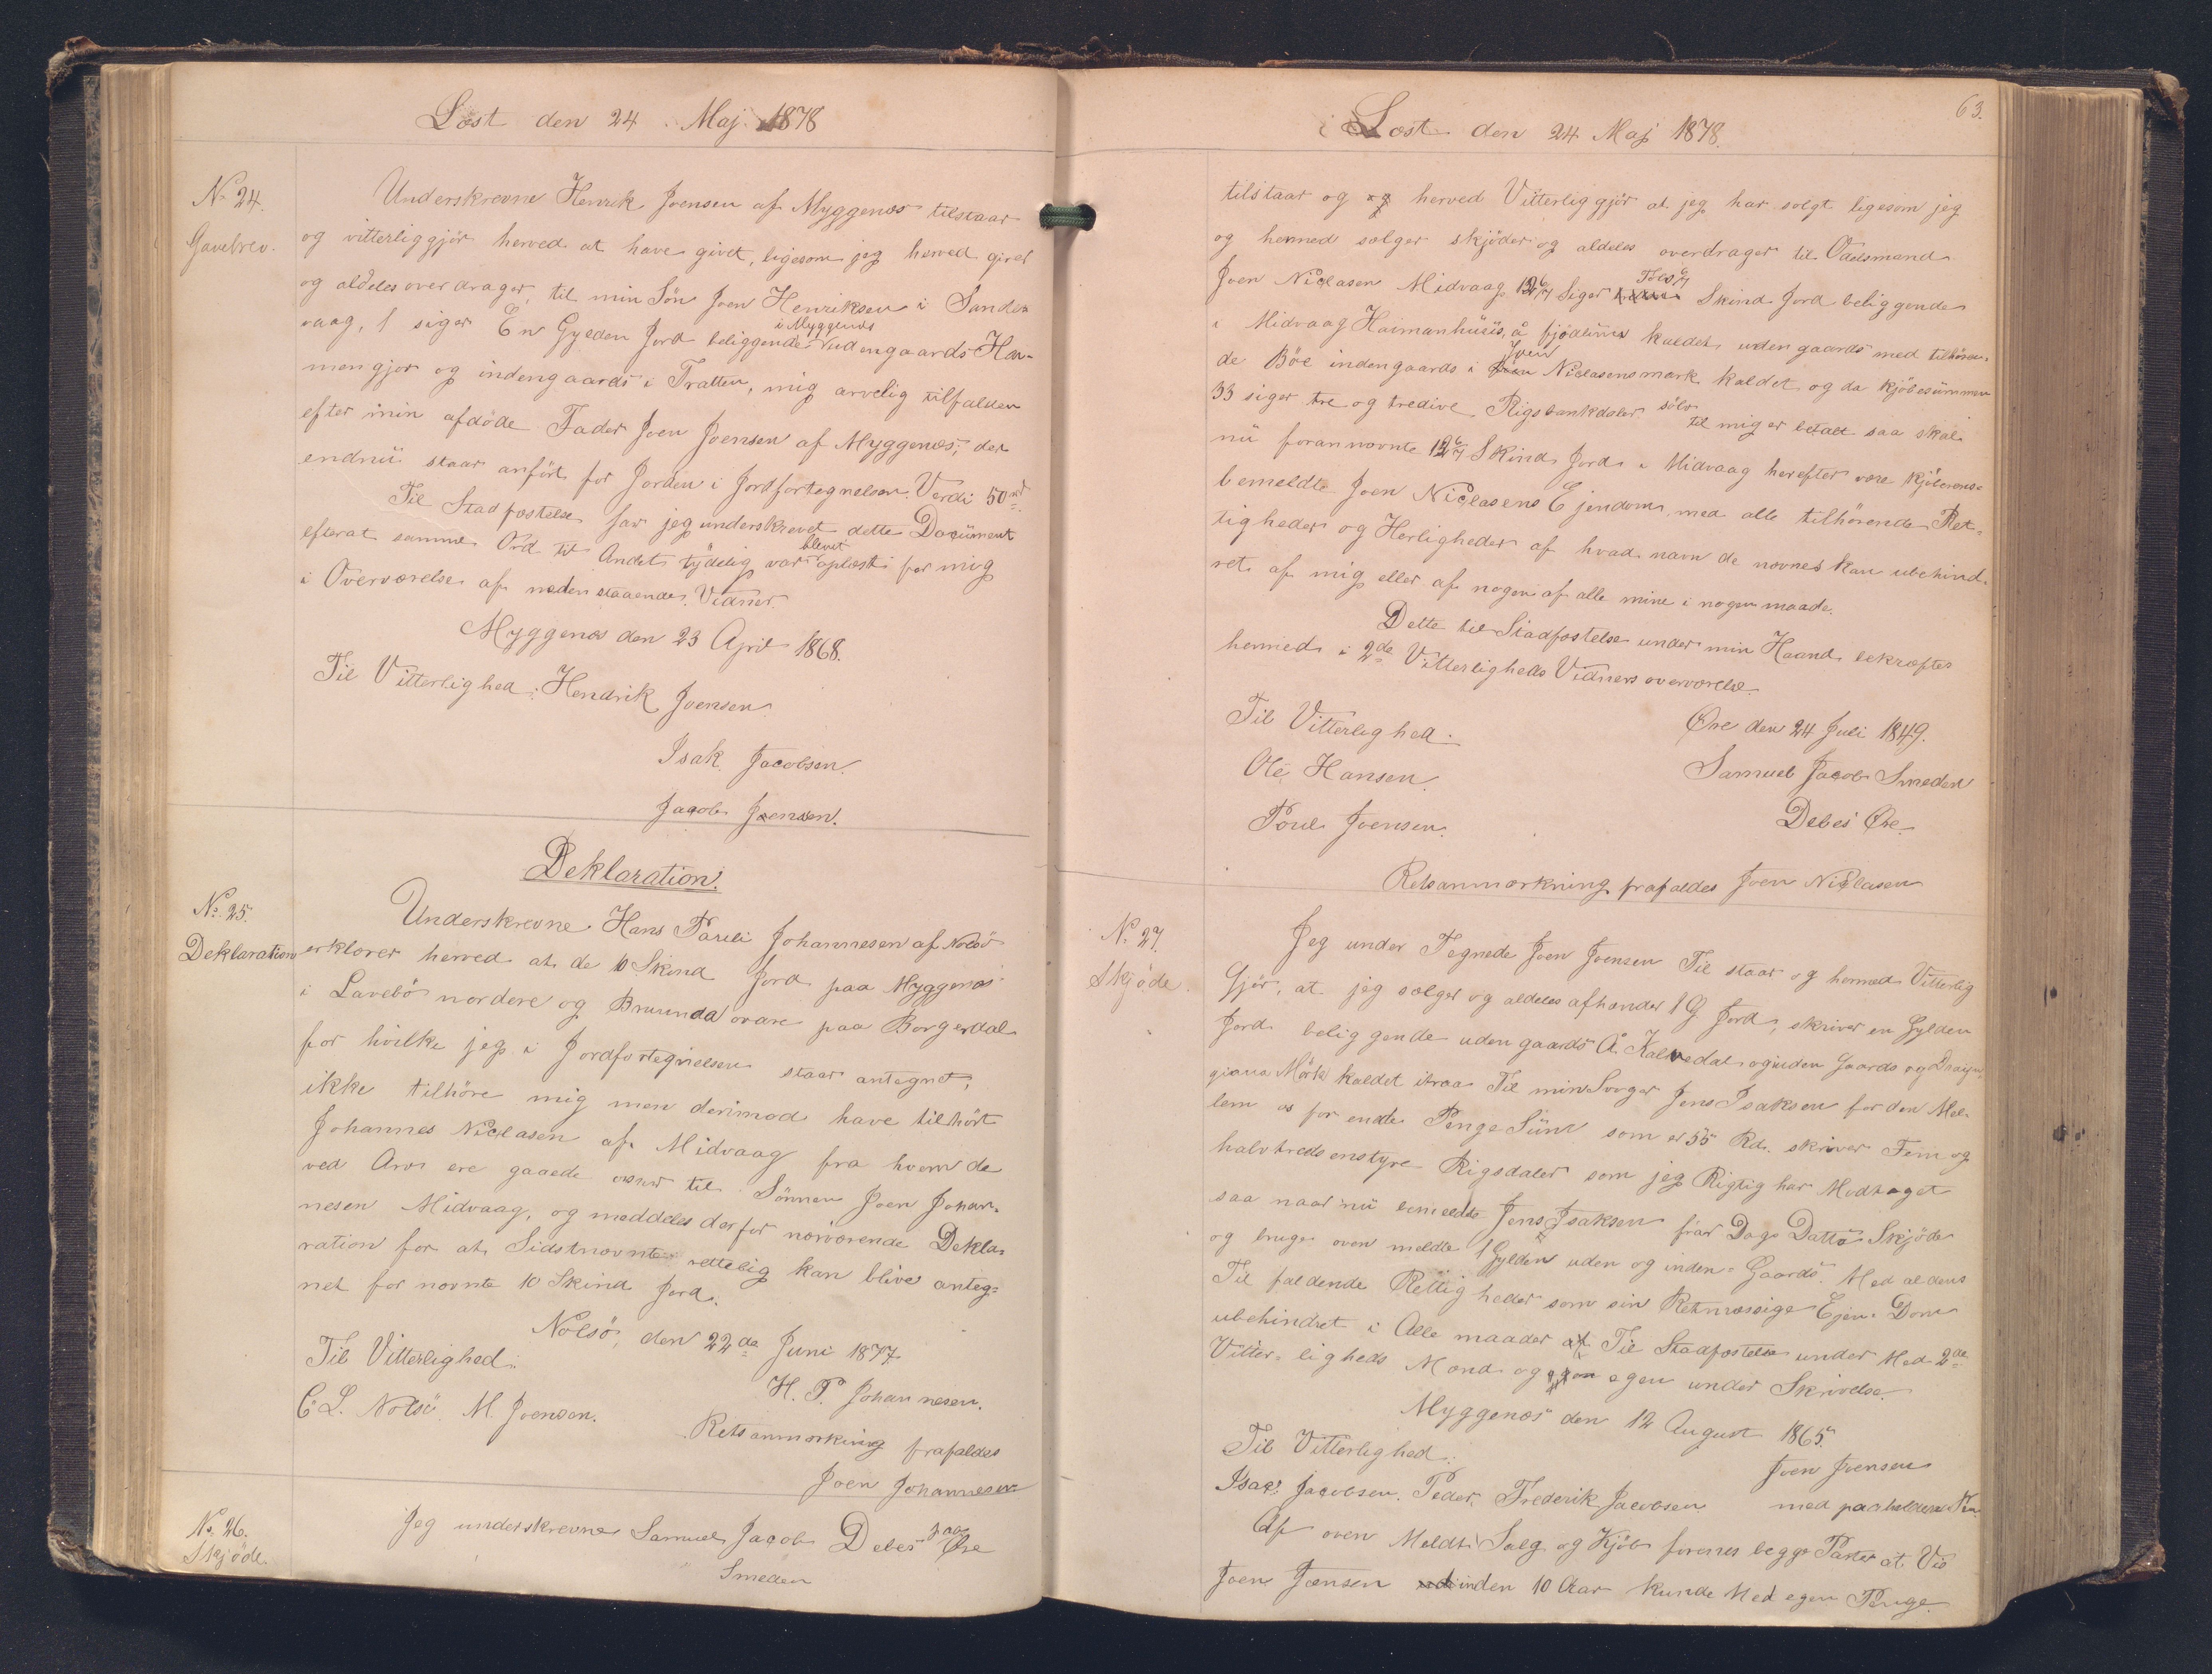 Læst den 24. Maj 1878
No 24.
Gavebrev.
Underskrevne Henrik Joensen af Myggenæs tilstaar
og vitterliggjör herved at have givet, ligesom jeg herved giver
og aldeles overdrager, til min Sön Joen Henriksen i Sandevaag,
vaag, 1 siger En Gylden Jord beliggende i Myggenæs udengaards Ham-
mengjor og indengaards i Tratten, mig arvelig tilfalden
efter min afdöde Fader Joen Joensen af Myggenæs, der
endnu staar anfört for Jorden i Jordfortegnelsen. Verdi 50
Til Stadfæstelse har jeg underskrevet dette Document
efterat samme Ord til Andet tydelig var blevet oplæst for mig
i Overværelse af nedenstaaende Vidner.
Myggenæs den 23 April 1868.
Til Vitterlighed: Hendrik Joensen
Isak Jacobsen.
Jacob Joensen.
Deklaration.
No. 25.
Deklaration
Underskrevne Hans Pauli Johannesen af Nolsö
erklærer herved at de 10 Skind Jord paa Myggenæs
i Lavebö nordere og Bruunda ovare paa Borgerdal
for hvilke jeg i Jordfortegnelsen staar antegnet,
ikke tilhöre mig men derimod have tilhört
Johannes Niclasen af Midvaag fra hvem de
ved Arv ere gaaede over til Sönnen Joen Johan-
nesen Midvaag, og meddeles derfor nærværende Dekla-
ration for at Sidstnævnte rettelig kan blive anteg-
net for nævnte 10 Skind Jord.
Nolsö, den 22de Juni 1877.
Til Vitterlighed:
H. P. Johannesen.
C. L. Nolsö. M. Joensen.
Retsanmærkning frafaldes
Joen Johannesen
No. 26.
Skjöde.
Jeg underskrevne Samuel Jacob Debes paa Öre
Smeden
63.
Læst den 24 Maj 1878.
tilstaar og og herved Vitterliggjör at jeg har solgt ligesom jeg
og hermed sælger skjöder og aldeles overdrager til Odelsmand
Joen Niclasen Midvaag 12 6/7 Siger Tolv 6/7 Skind Jord beliggende
i Midvaag Haimanhúsis, á fjödlinum kaldet udengaards med tilhören-
de Böe indengaards i Joen Niclasensmark kaldet og da Kjöbesummen
33 siger tre og tredive Rigsbankdaler sölv til mig er betalt saa skal
nu forannævnte 12 6/7 Skind Jord i Midvaag herefter være
bemeldte Joen Niclasens Ejendom med alle tilhörende Ret-
tigheder og Herligheder af hvad navn de nævnes kan ubehind-
ret af mig eller af nogen af alle mine i nogen maade.
Dette til Stadfæstelse under min Haand bekræftes
hermed i 2de Vitterligheds Vidners overværelse.
Til Vitterlighed.
Öre den 24 Juli 1849.
Ole Hansen.
Samuel Jacob Smeden
Poul Joensen.
Debes Öre
Retsanmærkning frafaldes Joen Niclasen
No. 27.
Skjöde.
Jeg under Tegnede Joen Joensen Til staar og hermed Vitterlig
Gjör, at jeg sælger og aldeles afhænder 1 G Jord, skriver en Gylden
Jord beliggende uden gaards Á Kalvedal oginden Gaards og
giana Mörk kaldet Til min Svoger Jens Isaksen for den Mel-
lem os for ende Penge Sum som er 55 Rd. skriver Fem og
halvtredsenstyve Rigsdaler som jeg Rigtig har Modtaget
saa naar nu bemeldte Jens Isaksen frar Dags Datto Skjöde
og bruge oven meldte 1 Gylden uden og inden-Gaards. Med aldens
Til faldende Rettigheder som sin Retmæssige Ejen-Dom
ubehindret i Alle maader Til Stadfæstelse under Med 2de
Vitter-ligheds Mænd og egen under Skrivelse
Myggenæs den 12 August 1865.
Til Vitterlighed:
Joen Joensen
Isac Jacobsen. Peder Frederik Jacobsen med paaholden Pen
Af oven Meldt Salg og Kjöb forenes begge Parter at Vis
Joen Joensen inden 10 Aar kunde Med egen Penge